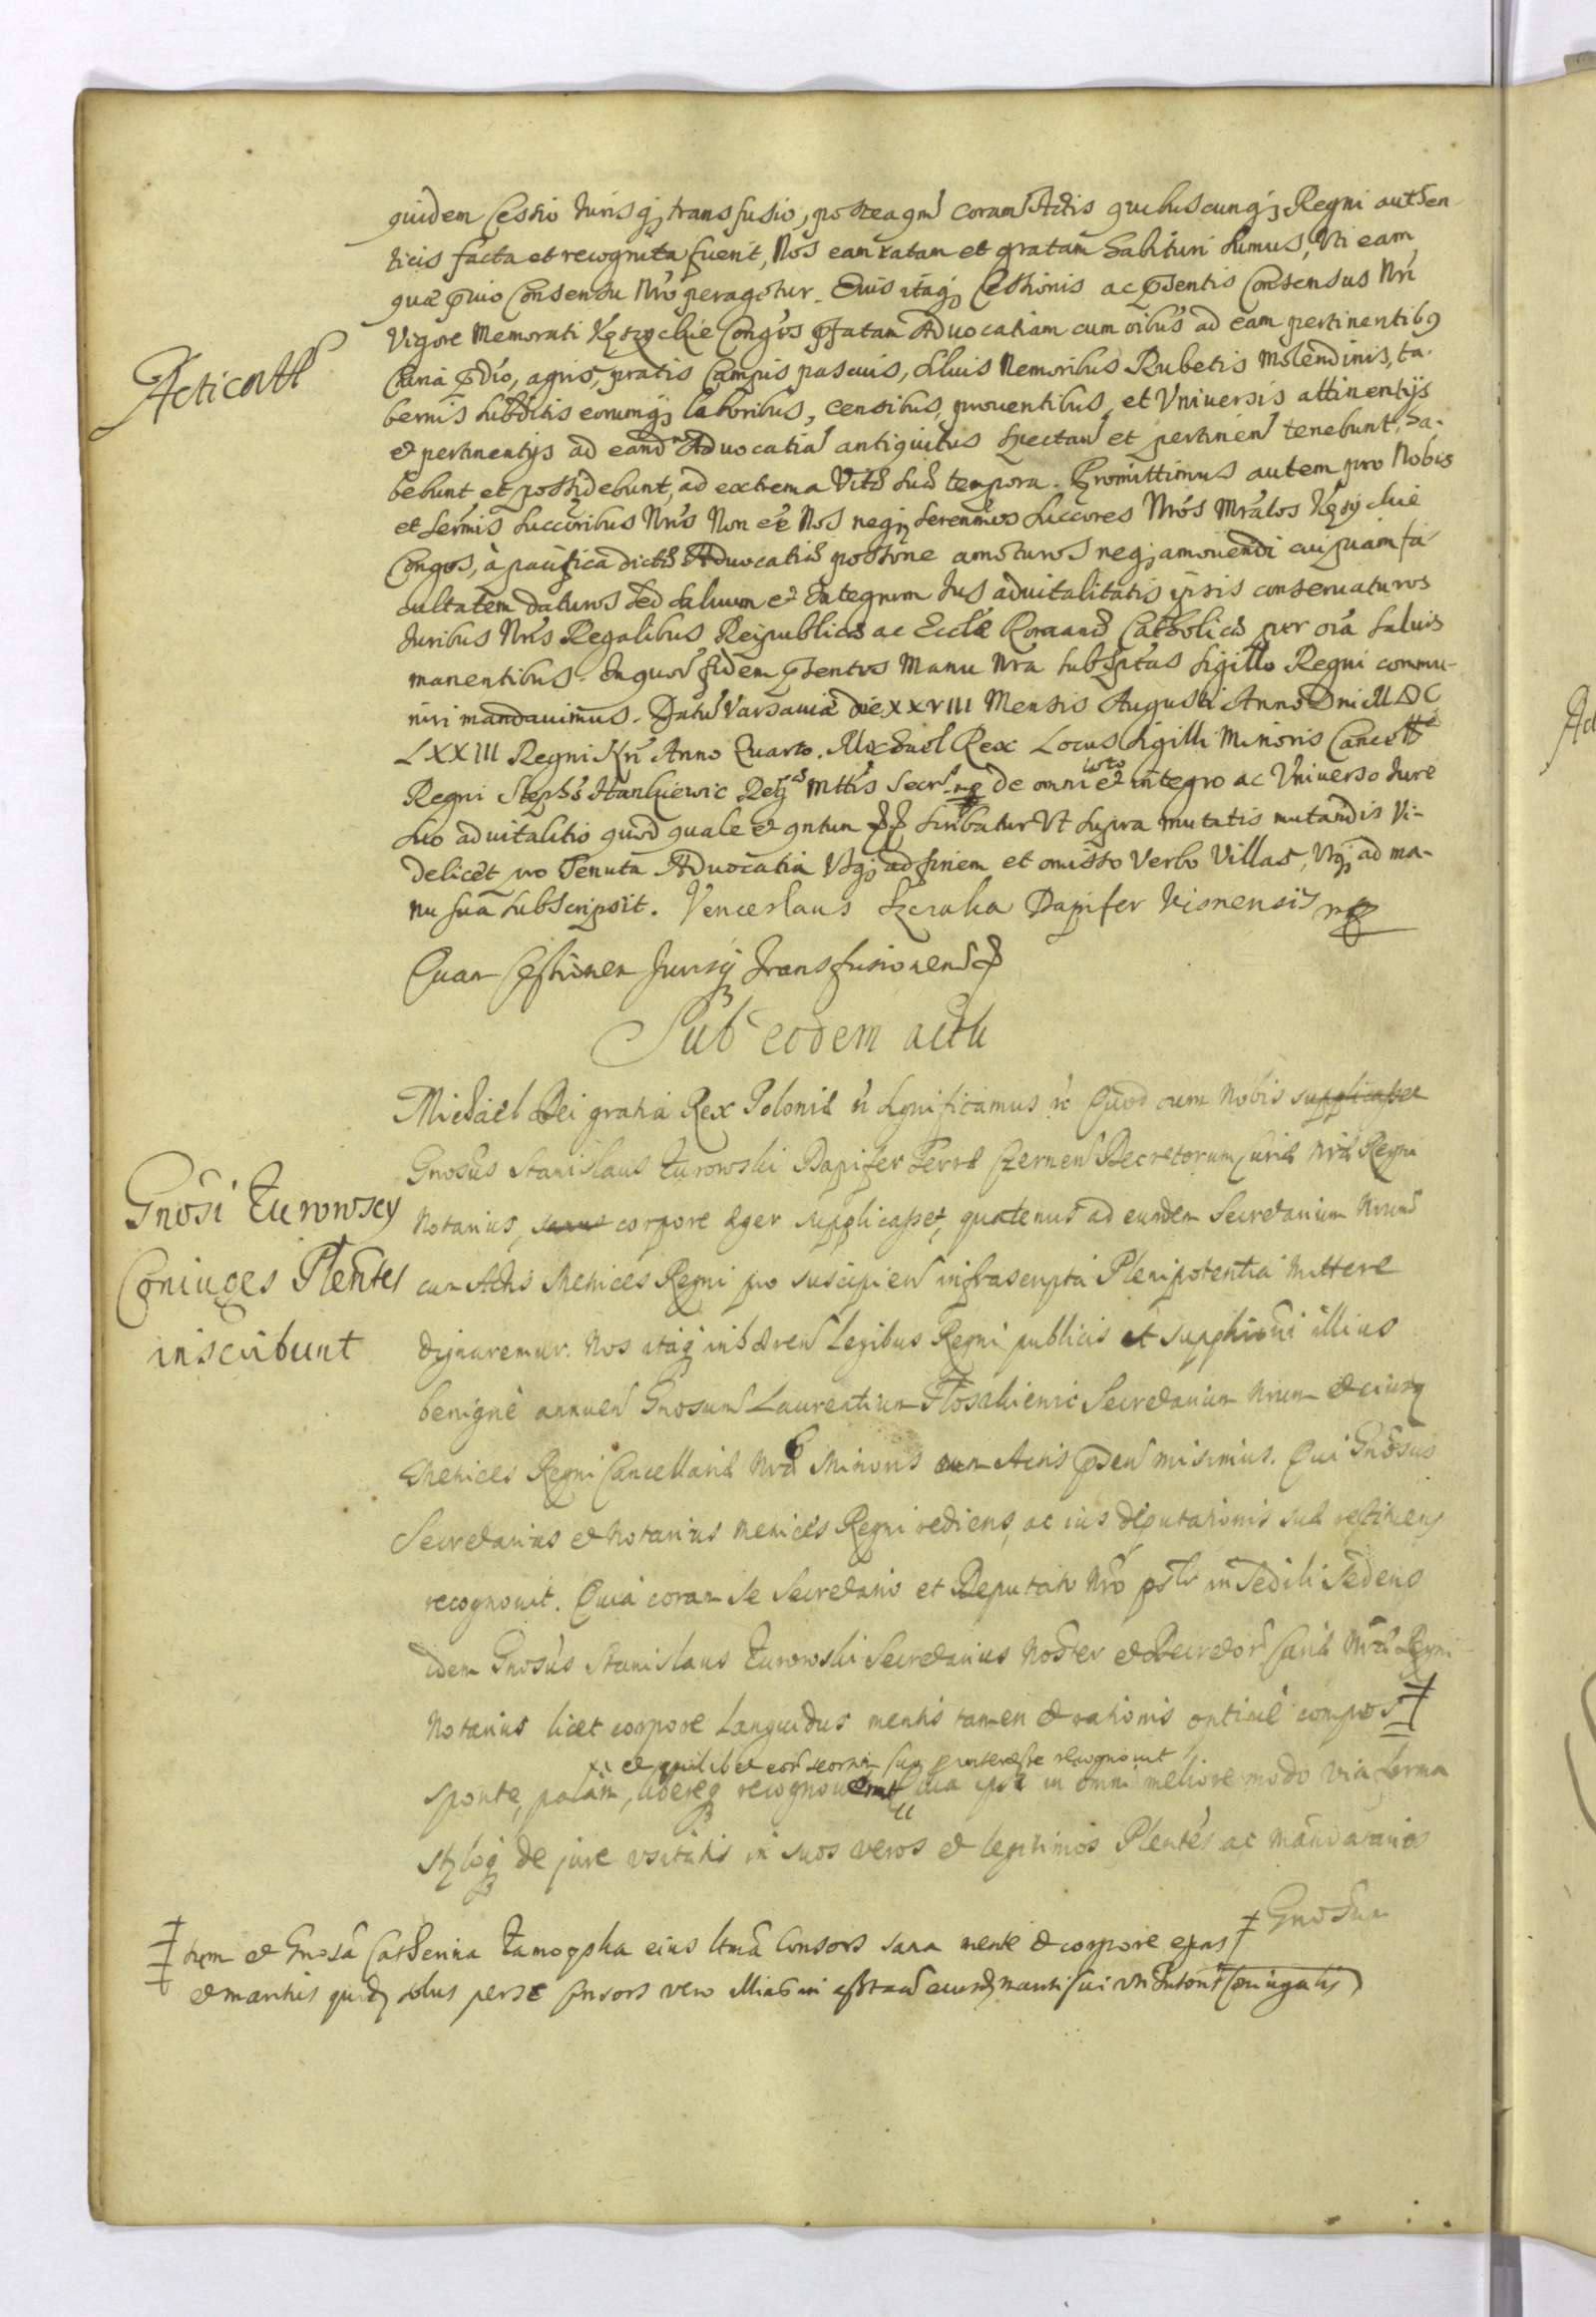 quidem Cessio Jurisq; transfusio, posteaqm coram Actis quibuscunq; Regni authen
ticis facta et recognita fuerit, Nos eam ratam et gratam habituri sumus, Uti eam
quæ prvio Consensu Nro peragetur. Cuius itaq; Cessionis ac pntis Consensus Nri
Vigore Memorati Congˢ pfatam Advocatiam cum oibus ad eam pertinentibus
Acticatt
Curia pdio, agris, pratis Campis pascuis, Siluis Nemoribus Rubetis Molendinis, ta-
bernis subditis eorumq; laboribus, censibus, prouentibus, et Vniuersis attinentijs
et pertinentijs ad eand Advocatia antiquitus spectan et pertinen tenebunt, ha-
bebunt et possidebunt, ad extrema Vitæ suæ tempora. Promittimus autem pro Nobis
et Sermis Succoribus Nris Non ee Nos neq; Serenmos Succores Nros Mratos
Congos, à pacifica dictæ Advocatiæ possone amoturos neq; amouendi cuipiam fa
cultatem daturos sed saluum et Integrum Jus aduitalitatis ipsis conseruaturos
Juribus Nris Regalibus Reipublicæ ac Ecclæ Romanæ Catholicæ per oia saluis
manentibus. In quor fidem pntes Manu Nra subscptas Sigillo Regni commu-
niri mandauimus. Datt Varsaviæ die XXVIII Mensis Augusti Anno Dni MDC
LXXIII Regni Nri Anno Quarto. Michael Rex Locus Sigilli Minoris Cancellæ
Regni Stephs Hankiewic Reg Mttis Secr. mp de omni toto et integro ac Vniuerso Jure
suo aduitalitio quod quale et qntum pp scribatur Vt supra mutatis mutandis Vi-
delicet pro Tenuta Advocatia Vsq; ad finem et omisso Verbo Villas, Vsq; ad ma-
nu sua subscripsit. Venceslaus Szczuka Dapifer Visnensis mp
Quam Cessionem Jurisq; transfusionem p
Sub eodem actu
Michael Dei gratia Rex Poloniæ &c Significamus &c Quod cum Nobis supplicasset
Gnosus Stanislaus Turowski Dapifer Terræ Czernen Decretorum Curiæ Nræ Regni
Gnosi Turowscy
Notarius, sanus corpore æger supplicasset, quatenus ad eundem Secretarium Nrum
Coniuges Plentes
cum Actis Metrices Regni pro suscipien infrascripta Plenipotentia mittere
inscribunt
dignaremur. Nos itaq; inhæren Legibus Regni publicis et supplicaoni illius
benignè annuen Gnosum Laurentium Secretarium Nrum et eiusq
Metrices Regni Cancellariæ Nræ Minoris cum Actis pden misimus. Qui Gnosus
Secretarius et Notarius Metrices Regni rediens, ac ius deputationis suæ restituens
recognouit. Quia coram Se Secretario et Deputato Nro pslr in Sedili Sedens
idem Gnosus Stanislaus Turowski Secretarius Noster et Decretor Curiæ Nræ Regni
Notarius licet corpore languidus mentis tamen et rationis optimè compos ‡
et quilibet eor seorsim suo p interesse recognouit
sponte, palàm, libereq; recognouerunt, quia ipsi in omni meliore modo via forma
styloq; de jure vsitatis in suos veros et legitimos Plentes ac Mandatarios
Gnosum
‡ tum et Gnosa Catherina Zamoyska eius ltma Consors sana mente et corpore exns ‡
et maritus quidem solus per se Consors vero illius in assistentia eiusd mariti sui vti Tutoris Coniugalis